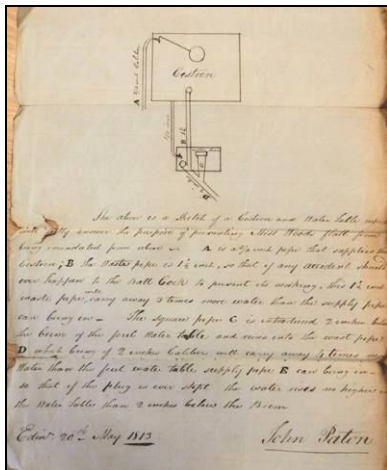 Cestren
A 3/4 inch
B 1 1/4
C
The above is a Sketch of a Cestren and Water Table
fully answer the purpose of Miss Woods flatt from
being inundated from above — A is a 3/4 inch pipe that supplies the
Cestren; B the Waste pipe is 1 1/4 inch, so that if any accident should
ever happen to the Ball Cock to prevent its working, this 1 1/4 inch
waste pipe, carry away 3 times more water than the supply pipe
can bring in — The square pipe C is introduced 2 inches below
the breem of the foul Water table, and runs into the wast pipe
D which being of 2 inches Caliber will carry away 4 times more
Water than the foul water table supply pipe E can bring in —
so that if the plug is ever stopt the water rises no higher in
the Water Table than 2 inches below the Breem
Edinr. 20th May 1813
John Paton